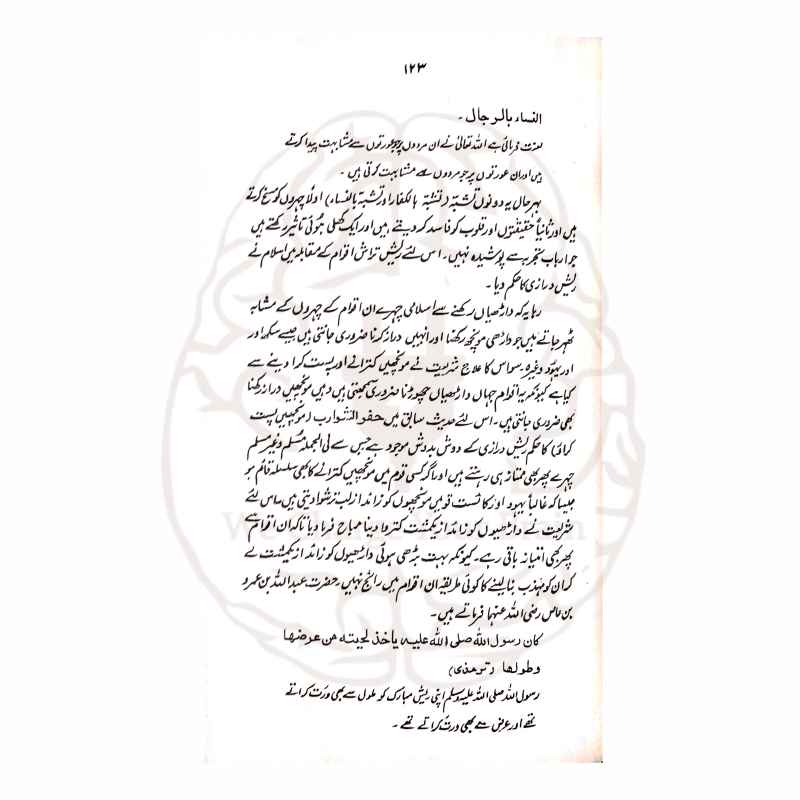 ۱۲۳
النساء بالرجال۔
لعنت فرمائی ہے اللہ تعالیٰ نے ان مردوں پر جو عورتوں سے مشابہت پیدا کرتے
ہیں اور ان عورتوں پر جو مردوں سے مشابہت کرتی ہیں۔
بہرحال یہ دونوں تشبہ (تشبہ بالکفار اور تشبہ بالنساء) اولاً چہروں کو مسخ کرتے
ہیں اور ثانیاً حقیقتوں اور قلوب کو فاسد کر دیتے ہیں اور ایک کھلی ہوئی تاثیر رکھتے ہیں
جو ارباب تجربہ سے پوشیدہ نہیں۔ اس لئے ریش تراش اقوام کے مقابلہ میں اسلام نے
ریش درازی کا حکم دیا۔
رہا یہ کہ داڑھیاں رکھنے سے اسلامی چہرے ان اقوام کے چہروں کے مشابہ
ٹھہر جاتے ہیں جو داڑھی مونچھ رکھنا اور انہیں دراز کرنا ضروری جانتی ہیں جیسے سکھ اور
اور یہود وغیرہ۔ سو اس کا علاج شریعت نے مونچھیں کترانے اور پست کرا دینے سے
کیا ہے کیونکہ یہ اقوام جہاں داڑھیاں چھوڑنا ضروری سمجھتی ہیں وہیں مونچھیں دراز رکھنا
بھی ضروری جانتی ہیں۔ اس لئے حدیث سابق میں حفوا الشوارب (مونچھیں پست
کراؤ) کا حکم ریش درازی کے دوش بدوش موجود ہے جس سے فی الجملہ مسلم و غیر مسلم
چہرے پھر بھی ممتاز ہی رہتے ہیں اور اگر کسی قوم میں مونچھیں کترانے کا بھی سلسلہ قائم ہو
جیسا کہ غالباً یہود اور کاتست قومیں مونچھوں کو زائد از لب ترشوا دیتی ہیں۔ اس لئے
شریعت نے داڑھیوں کو زائد از یکمشت کتروا دینا مباح فرما دیا تاکہ ان اقوام سے
پھر بھی امتیاز باقی رہے۔ کیونکہ بہت بڑھی ہوئی داڑھیوں کو زائد از یکمشت لے
کر ان کو مہذب بنا لینے کا کوئی طریقہ ان اقوام میں رائج نہیں۔ حضرت عبد اللہ بن عمرو
بن عاص رضی اللہ عنہما فرماتے ہیں۔
کان رسول اللہ صلی اللہ علیہ یاخذ لحیتہ من عرضھا
وطولھا (ترمذی)
رسول اللہ صلی اللہ علیہ وسلم اپنی ریش مبارک کو طول سے بھی درست کراتے
تھے اور عرض سے بھی درست کراتے تھے۔